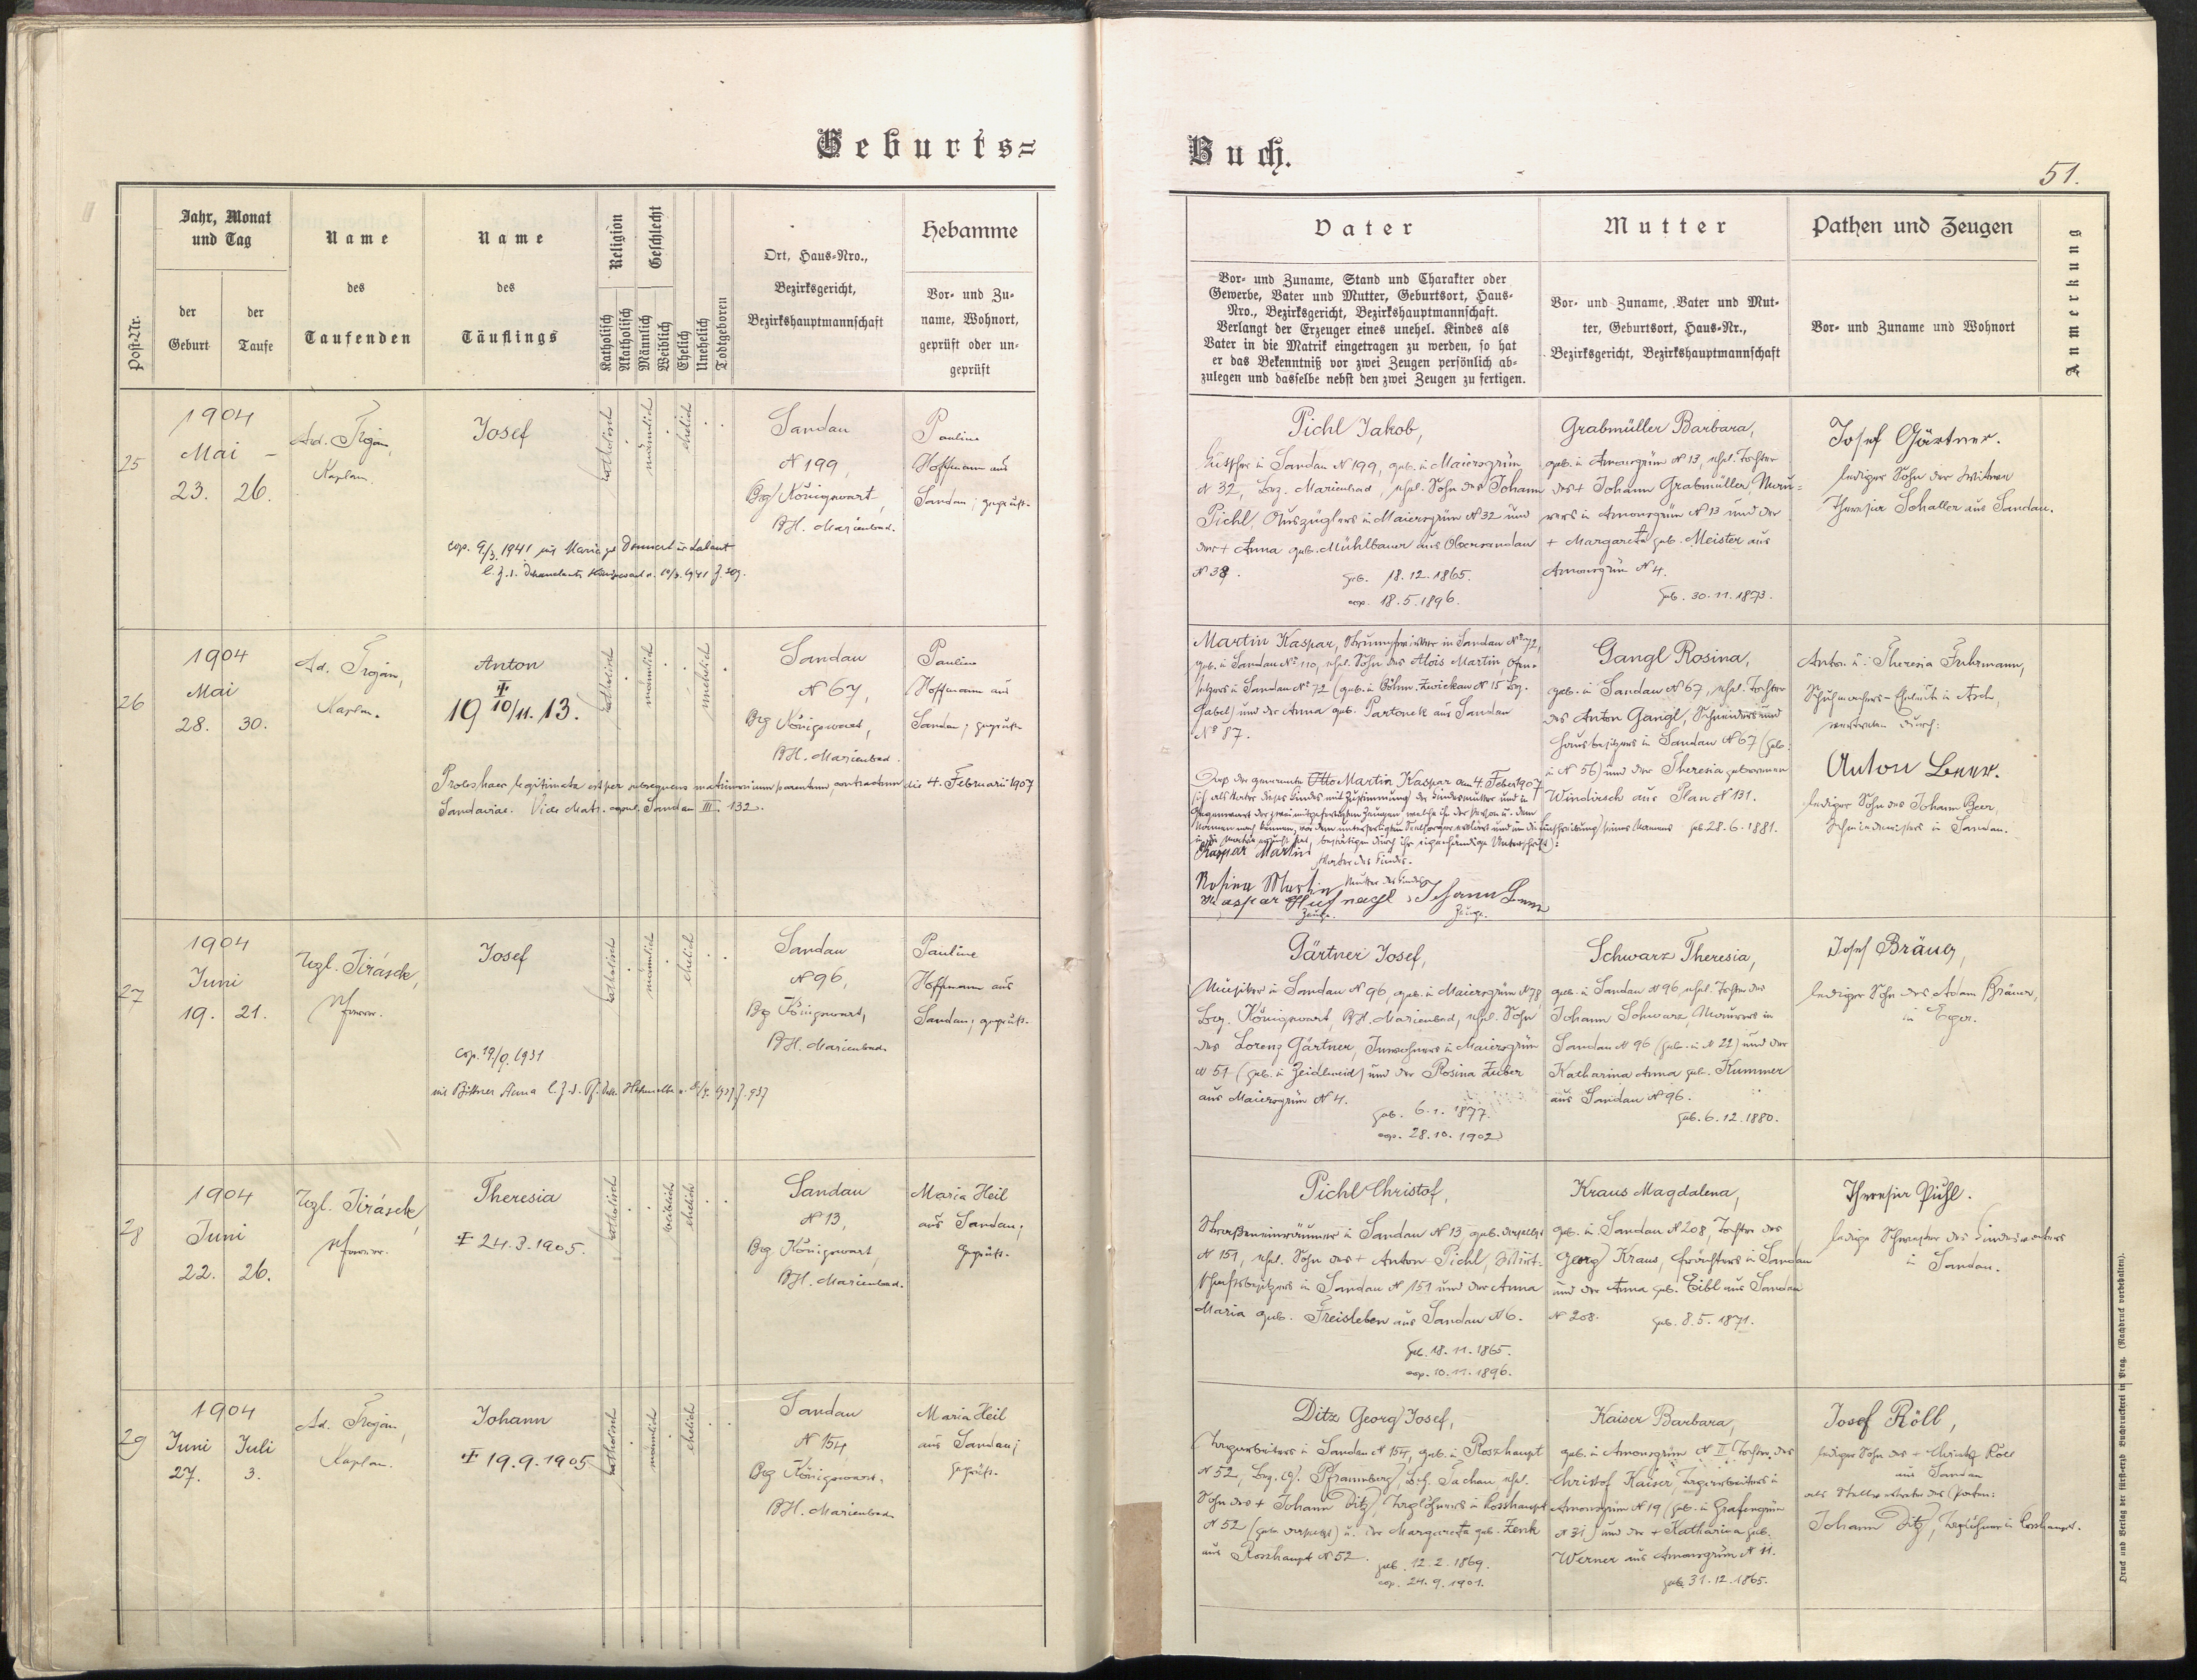 Geburts=
Buch.
51.
Post-Nr.
Jahr, Monat
und Tag
der
Geburt
der
Taufe
Name
des
Taufenden
Name
des
Täuflings
Religion
Katholisch
Akatholisch
Geschlecht
Männlich
Weiblich
Ehelich
Unehelich
Todtgeboren
Ort, Haus-Nro.,
Bezirksgericht,
Bezirkshauptmannschaft
Hebamme
Vor- und Zu-
name, Wohnort,
geprüft oder un-
geprüft
Vater
Vor- und Zuname, Stand und Charakter oder
Gewerbe, Vater und Mutter, Geburtsort, Haus-
Nro., Bezirksgericht, Bezirkshauptmannschaft.
Verlangt der Erzeuger eines unehel. Kindes als
Vater in die Matrik eingetragen zu werden, so hat
er das Bekenntniß vor zwei Zeugen persönlich ab-
zulegen und dasselbe nebst den zwei Zeugen zu fertigen.
Mutter
Vor- und Zuname, Vater und Mut-
ter, Geburtsort, Haus-Nr.,
Bezirksgericht, Bezirkshauptmannschaft
Pathen und Zeugen
Vor- und Zuname und Wohnort
Anmerkung
25
1904
Mai
23. 26.
Ad. Trojan,
Kaplan.
Josef
katholisch
männlich
ehelich
Sandau
N 199,
Bzg Königswart,
BH. Marienbad.
Pauline
Hoffmann aus
Sandau; geprüft.
cop. 9/3. 1941 mit Maria
Pichl Jakob,
Kutscher in Sandau N 199, geb. in Maiersgrün
N 32, Bez. Marienbad, ehel. Sohn des Johann
Pichl, Auszüglers in Maiersgrün N 32 und
der + Anna geb. Mühlbauer aus Obersandau
N 38.
geb. 18.12.1865.
cop. 18.5.1896.
Grabmüller Barbara,
geb. in Amonsgrün N 13, ehel. Tochter
des + Johann Grabmüller Mau=
rers in Amonsgrün N 13 und der
+ Margareta geb. Meister aus
Amonsgrün N 4.
geb. 30.11.1873.
Josef Gärtner.
lediger Sohn der Witwe
Theresia Schaller aus Sandau.
26
1904
Mai
28. 30.
Ad. Trojan,
Kaplan.
Anton
19 10/11. 13.
katholisch
männlich
unehelich
Sandau
N 67,
Bzg Königswart,
BH. Marienbad.
Pauline
Hoffmann aus
Sandau; geprüft
Proles haec legitimata est per subsequens matrimonium parentum, contractum die 4. Februarii 1907
Sandaviae. Vide Matr. copul. Sandau III. 132.
Martin Kaspar, Strumpfwirker in Sandau No 72,
geb. in Sandau No 110, ehel. Sohn des Alois Martin,
in Sandau No 72 (geb. in Böhm. Zwickau N 15 Bez.
Gabel) und der Anna geb. Partonek aus Sandau
No 87.
Daß der genannte Otto Martin Kaspar am 4. Feber 1907
sich als Vater dieses Kindes mit Zustimmung der Kindesmutter und in
Gegenwart der zwei mitgefertigten Zeugen, welche ihn der Person u. dem
Namen nach kennen, vor dem unterfertigten Seelsorger erklärt und um die Einschreibung seines Namens
in die Matrik ersucht hat, bestätigen durch ihre eigenhändige Unterschrift:
Kaspar Martin
Vater des Kindes.
Rosina Martin Mutter des Kindes
Kaspar Hufnagl Johann Beer
Zeuge. Zeuge.
Gangl Rosina,
geb. in Sandau N 67, ehel. Tochter
des Anton Gangl, Schneiders und
Hausbesitzers in Sandau N 67 (geb.
in N 56) und der Theresia geborenen
Windirsch aus Plan N 131.
geb 28.6.1881.
Anton u. Theresia Fuhrmann,
Schuhmachers-Eheleute in Asch,
vertreten durch:
Anton Beer.
lediger Sohn des Johann Beer,
Schmiedemeisters in Sandau.
27
1904
Juni
19. 21.
Jirásek,
Pfarrer.
Josef
katholisch
männlich
ehelich
Sandau
N 96,
Bzg Königswart,
BH. Marienbad.
Pauline
Hoffmann aus
Sandau; geprüft.
cop. 19/9. 1931
mit Bittner Anna
Gärtner Josef,
Musiker in Sandau N 96, geb. in Maiersgrün N 78
Bez. Königswart, BH. Marienbad, ehel. Sohn
des Lorenz Gärtner, Inwohners in Maiersgrün
N 51 (geb. in Zeidlweid) und der Rosina Zuber
aus Maiersgrün N 4.
geb. 6.1.1877.
cop. 28.10.1902
Schwarz Theresia,
geb. in Sandau N 96, ehel. Tochter des
Johann Schwarz, Maurers in
Sandau N 96 (geb. in N 22) und der
Katharina Anna geb. Kummer
aus Sandau N 96.
geb. 6.12.1880.
Josef Bräuer,
lediger Sohn des Adam Bräuer,
in Eger.
28
1904
Juni
22. 26.
Jirásek,
Pfarrer.
Theresia
24.3.1905.
katholisch
weiblich
ehelich
Sandau
N 13,
Bzg Königswart,
BH. Marienbad.
Maria Heil
aus Sandau;
geprüft.
Pichl Christof,
Straßeneinräumer in Sandau N 13, geb. daselbst
N 151, ehel. Sohn des + Anton Pichl, Wirt-
schaftsbesitzers in Sandau N 151 und der Anna
Maria geb. Freisleben aus Sandau N 6.
geb. 18.11.1865.
cop. 10.11.1896.
Kraus Magdalena,
geb. in Sandau N 208, Tochter des
Georg Kraus, Frächters in Sandau
und der Anna geb. Eibl aus Sandau
N 208.
geb. 8.5.1871.
Theresia Pichl.
ledige Schwester des Kindesvaters
in Sandau.
29
1904
Juni Juli
27. 3.
Ad. Trojan,
Kaplan.
Johann
19.9.1905
katholisch
männlich
ehelich
Sandau
N 154,
Bzg Königswart,
BH. Marienbad
Maria Heil
aus Sandau;
geprüft.
Ditz Georg Josef,
Tagarbeiter in Sandau N 154, geb. in Roszhaupt
N 52, Bez. G. Pfraumberg, Bh. Tachau ehel.
Sohn des + Johann Ditz, Taglöhners in Rosshaupt
N 52 (geb. daselbst) u. der Margareta geb. Zenk
aus Rosshaupt N 52.
geb. 12.2.1869.
cop. 24.9.1901.
Kaiser Barbara,
geb. in Amonsgrün N II, Tochter des
Christof Kaiser, Tagarbeiters in
Amonsgrün N 19 (geb. in Grafengrün
N 31) und der + Katharina geb.
Werner aus Amonsgrün N 11.
geb. 31.12.1865.
Josef Röll,
lediger Sohn des + Christof Röll
aus Sandau
als Stellvertreter des Paten:
Johann Ditz, Taglöhner in Rosshaupt.
Druck und Verlag der fürst-erzb Buchdruckerei in Prag. (Nachdruck vorbehalten).